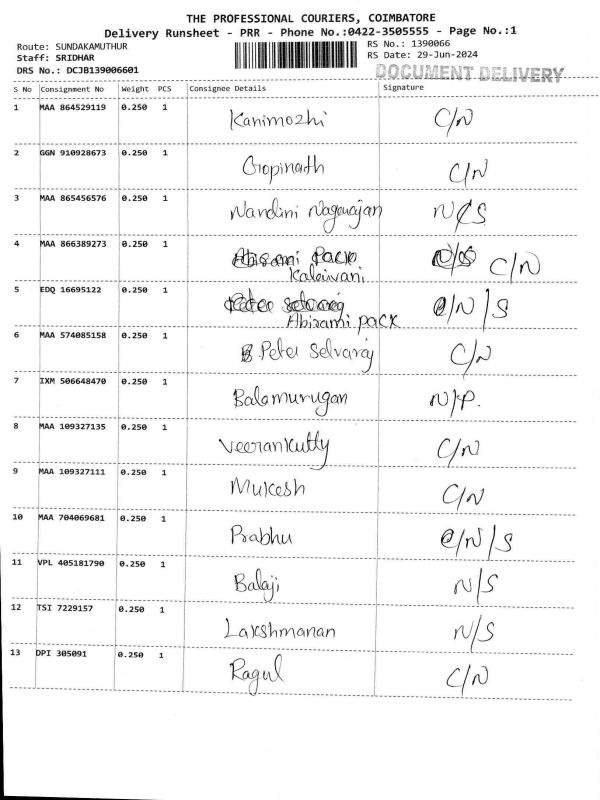 THE PROFESSIONAL COURIERS, COIMBATORE
Delivery Runsheet - PRR - Phone No.:0422-3505555 - Page No.:1
Route: SUNDAKAMUTHUR RS No.: 1390066
Staff: SRIDHAR RS Date: 29-Jun-2024
DRS No.: DCJB139006601 DOCUMENT DELIVERY
S No Consignment No Weight PCS Consignee Details Signature
1 MAA 864529119 0.250 1 Kanimozhi C/N
2 GGN 910928673 0.250 1 Gopinath C/N
3 MAA 865456576 0.250 1 Nandini Nagarajan N/S
4 MAA 866389273 0.250 1 Abisami Pack N/S C/N
Kalaivani
5 EDQ 16695122 0.250 1 Peter selvaraj /N/S
Abirami pack
6 MAA 574085158 1 Peter Selvaraj C/N
7 IXM 506648470 0.250 1 Balamurugan N/P.
8 MAA 109327135 0.250 1 Veerankutty C/N
9 MAA 109327111 0.250 1 Mukesh C/N
10 MAA 704069681 0.250 1 Prabhu C/N/S
11 VPL 405181790 0.250 1 Balaji N/S
12 TSI 7229157 0.250 1 Lakshmanan N/S
13 DPI 305091 0.250 1 Ragul C/N